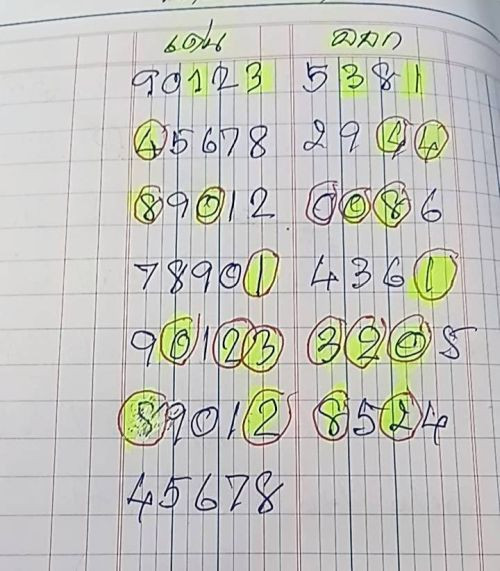 เด่น ออก
90123 5381
45678 2944
89012 0086
78901 4361
90123 3205
89012 8524
45678